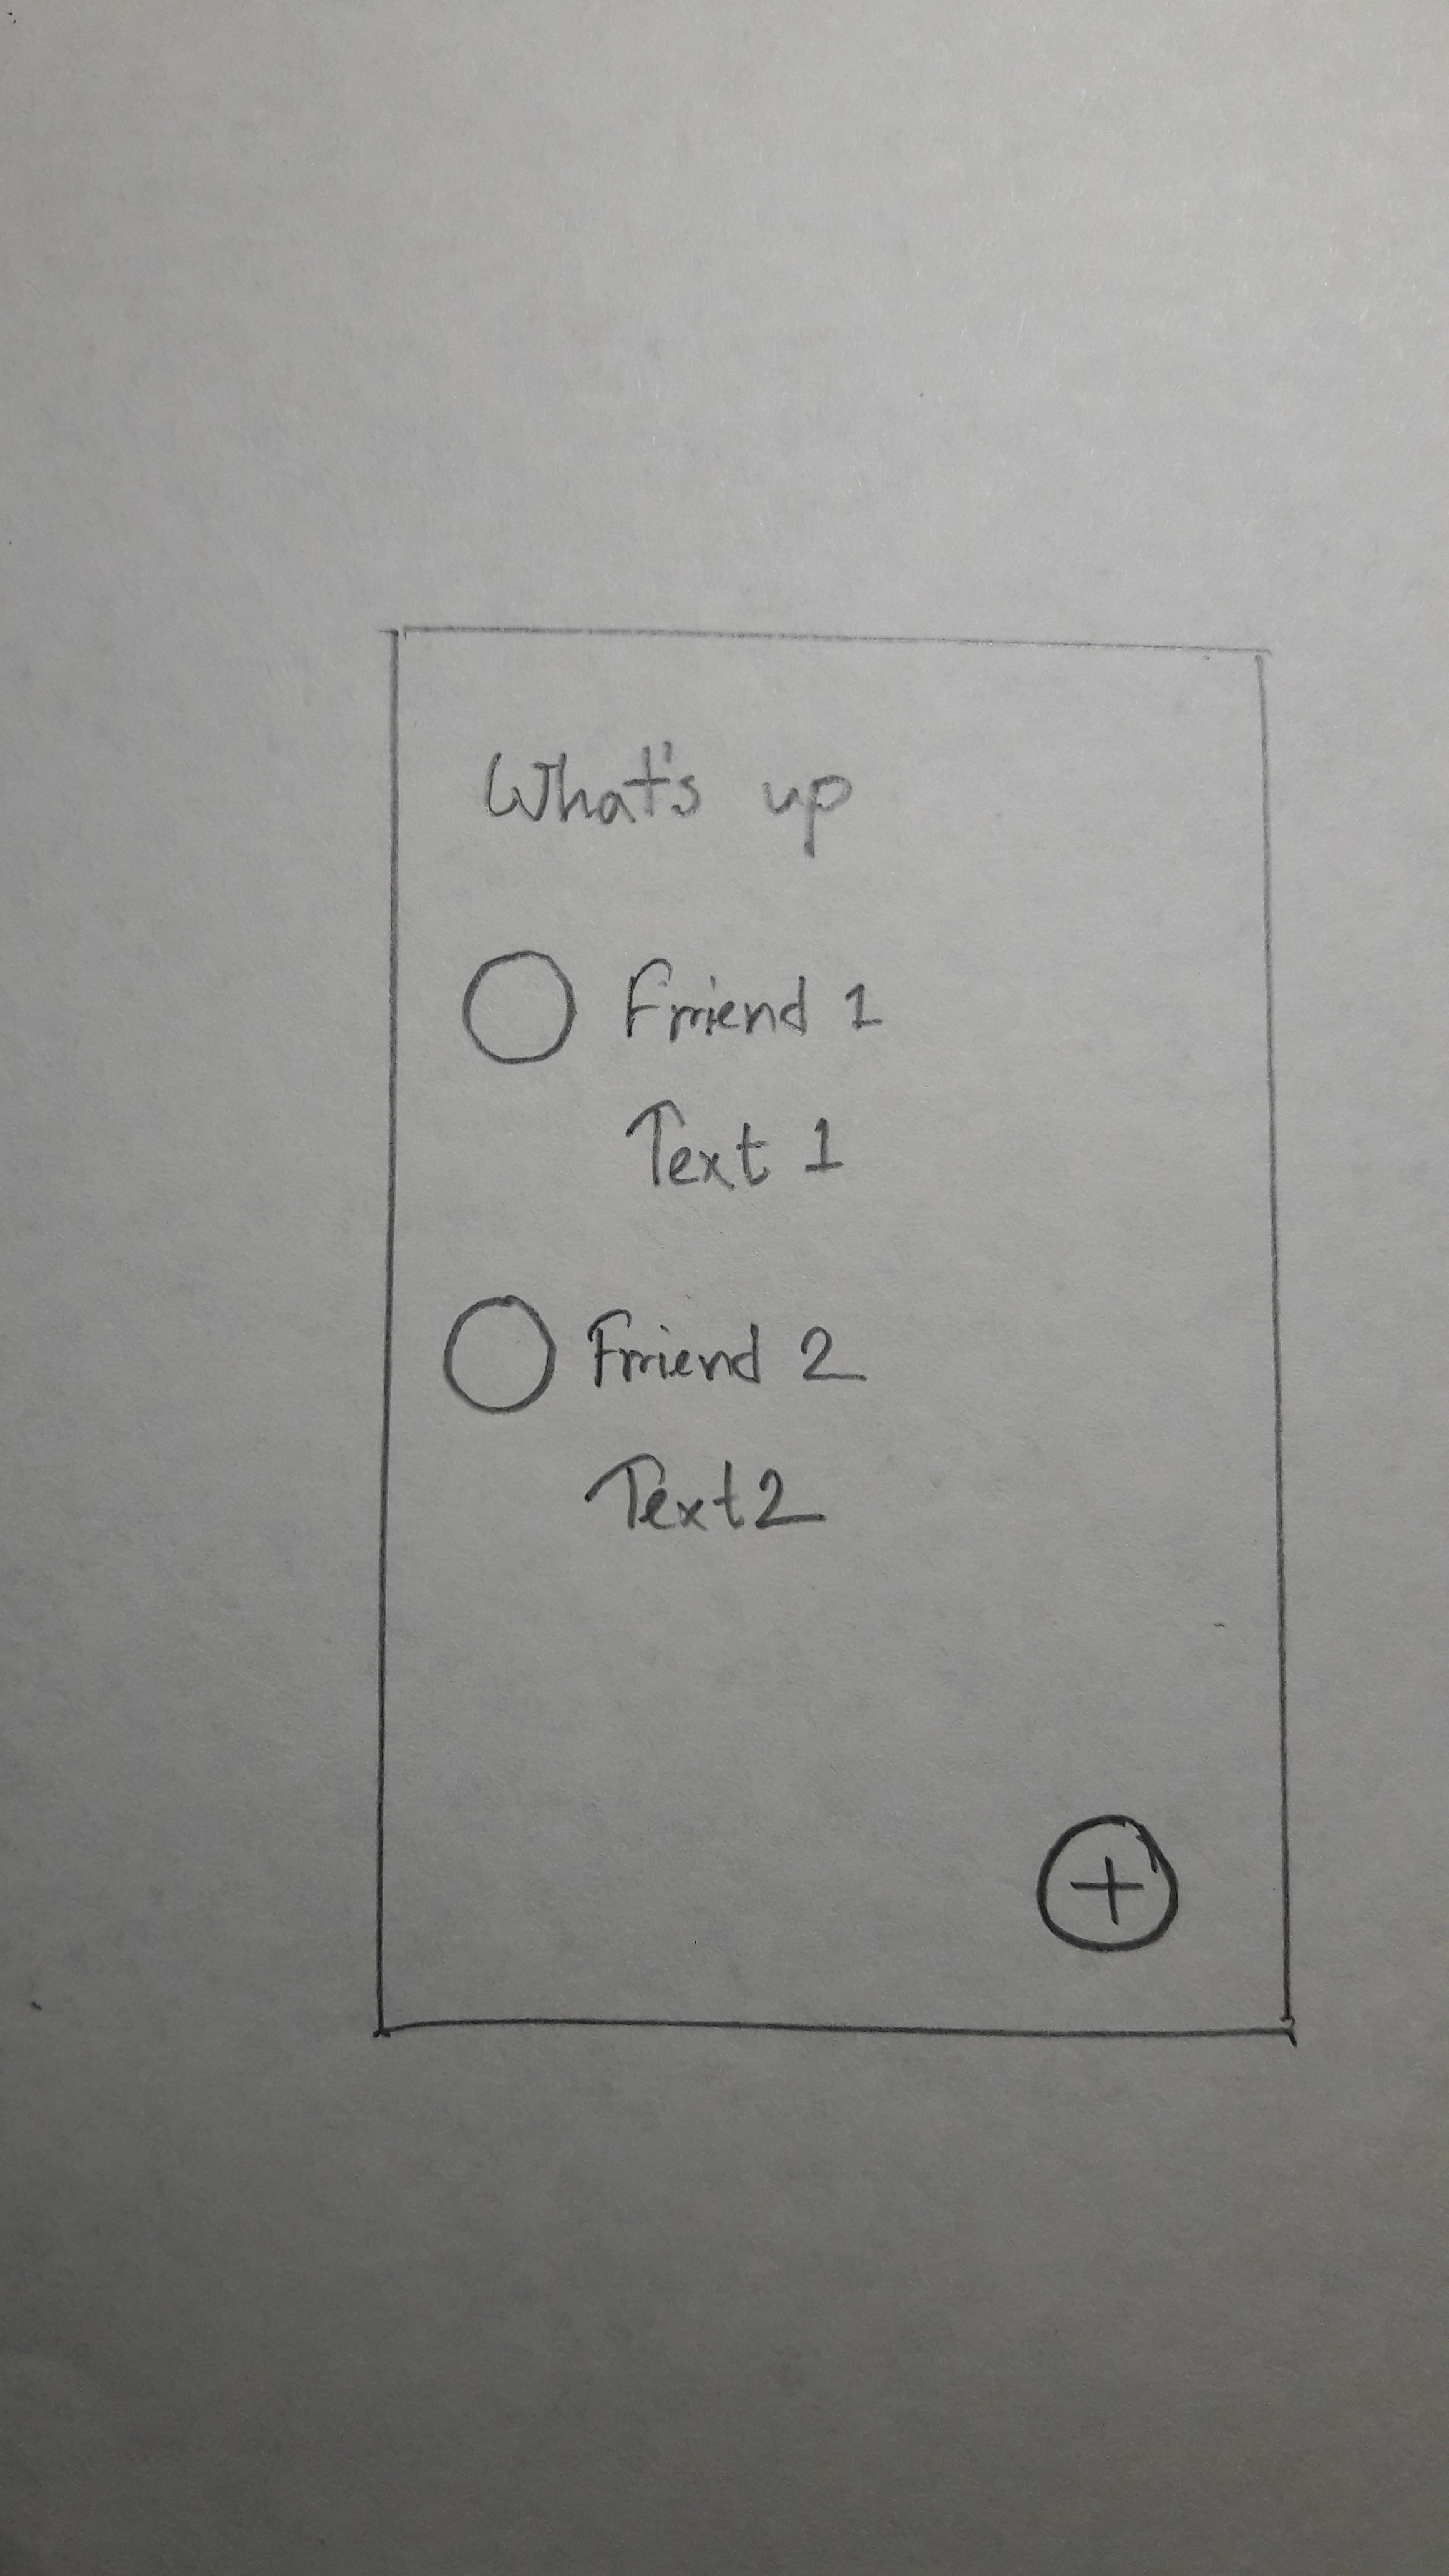 What's up
Friend 1
Text 1
Friend 2
Text 2
+